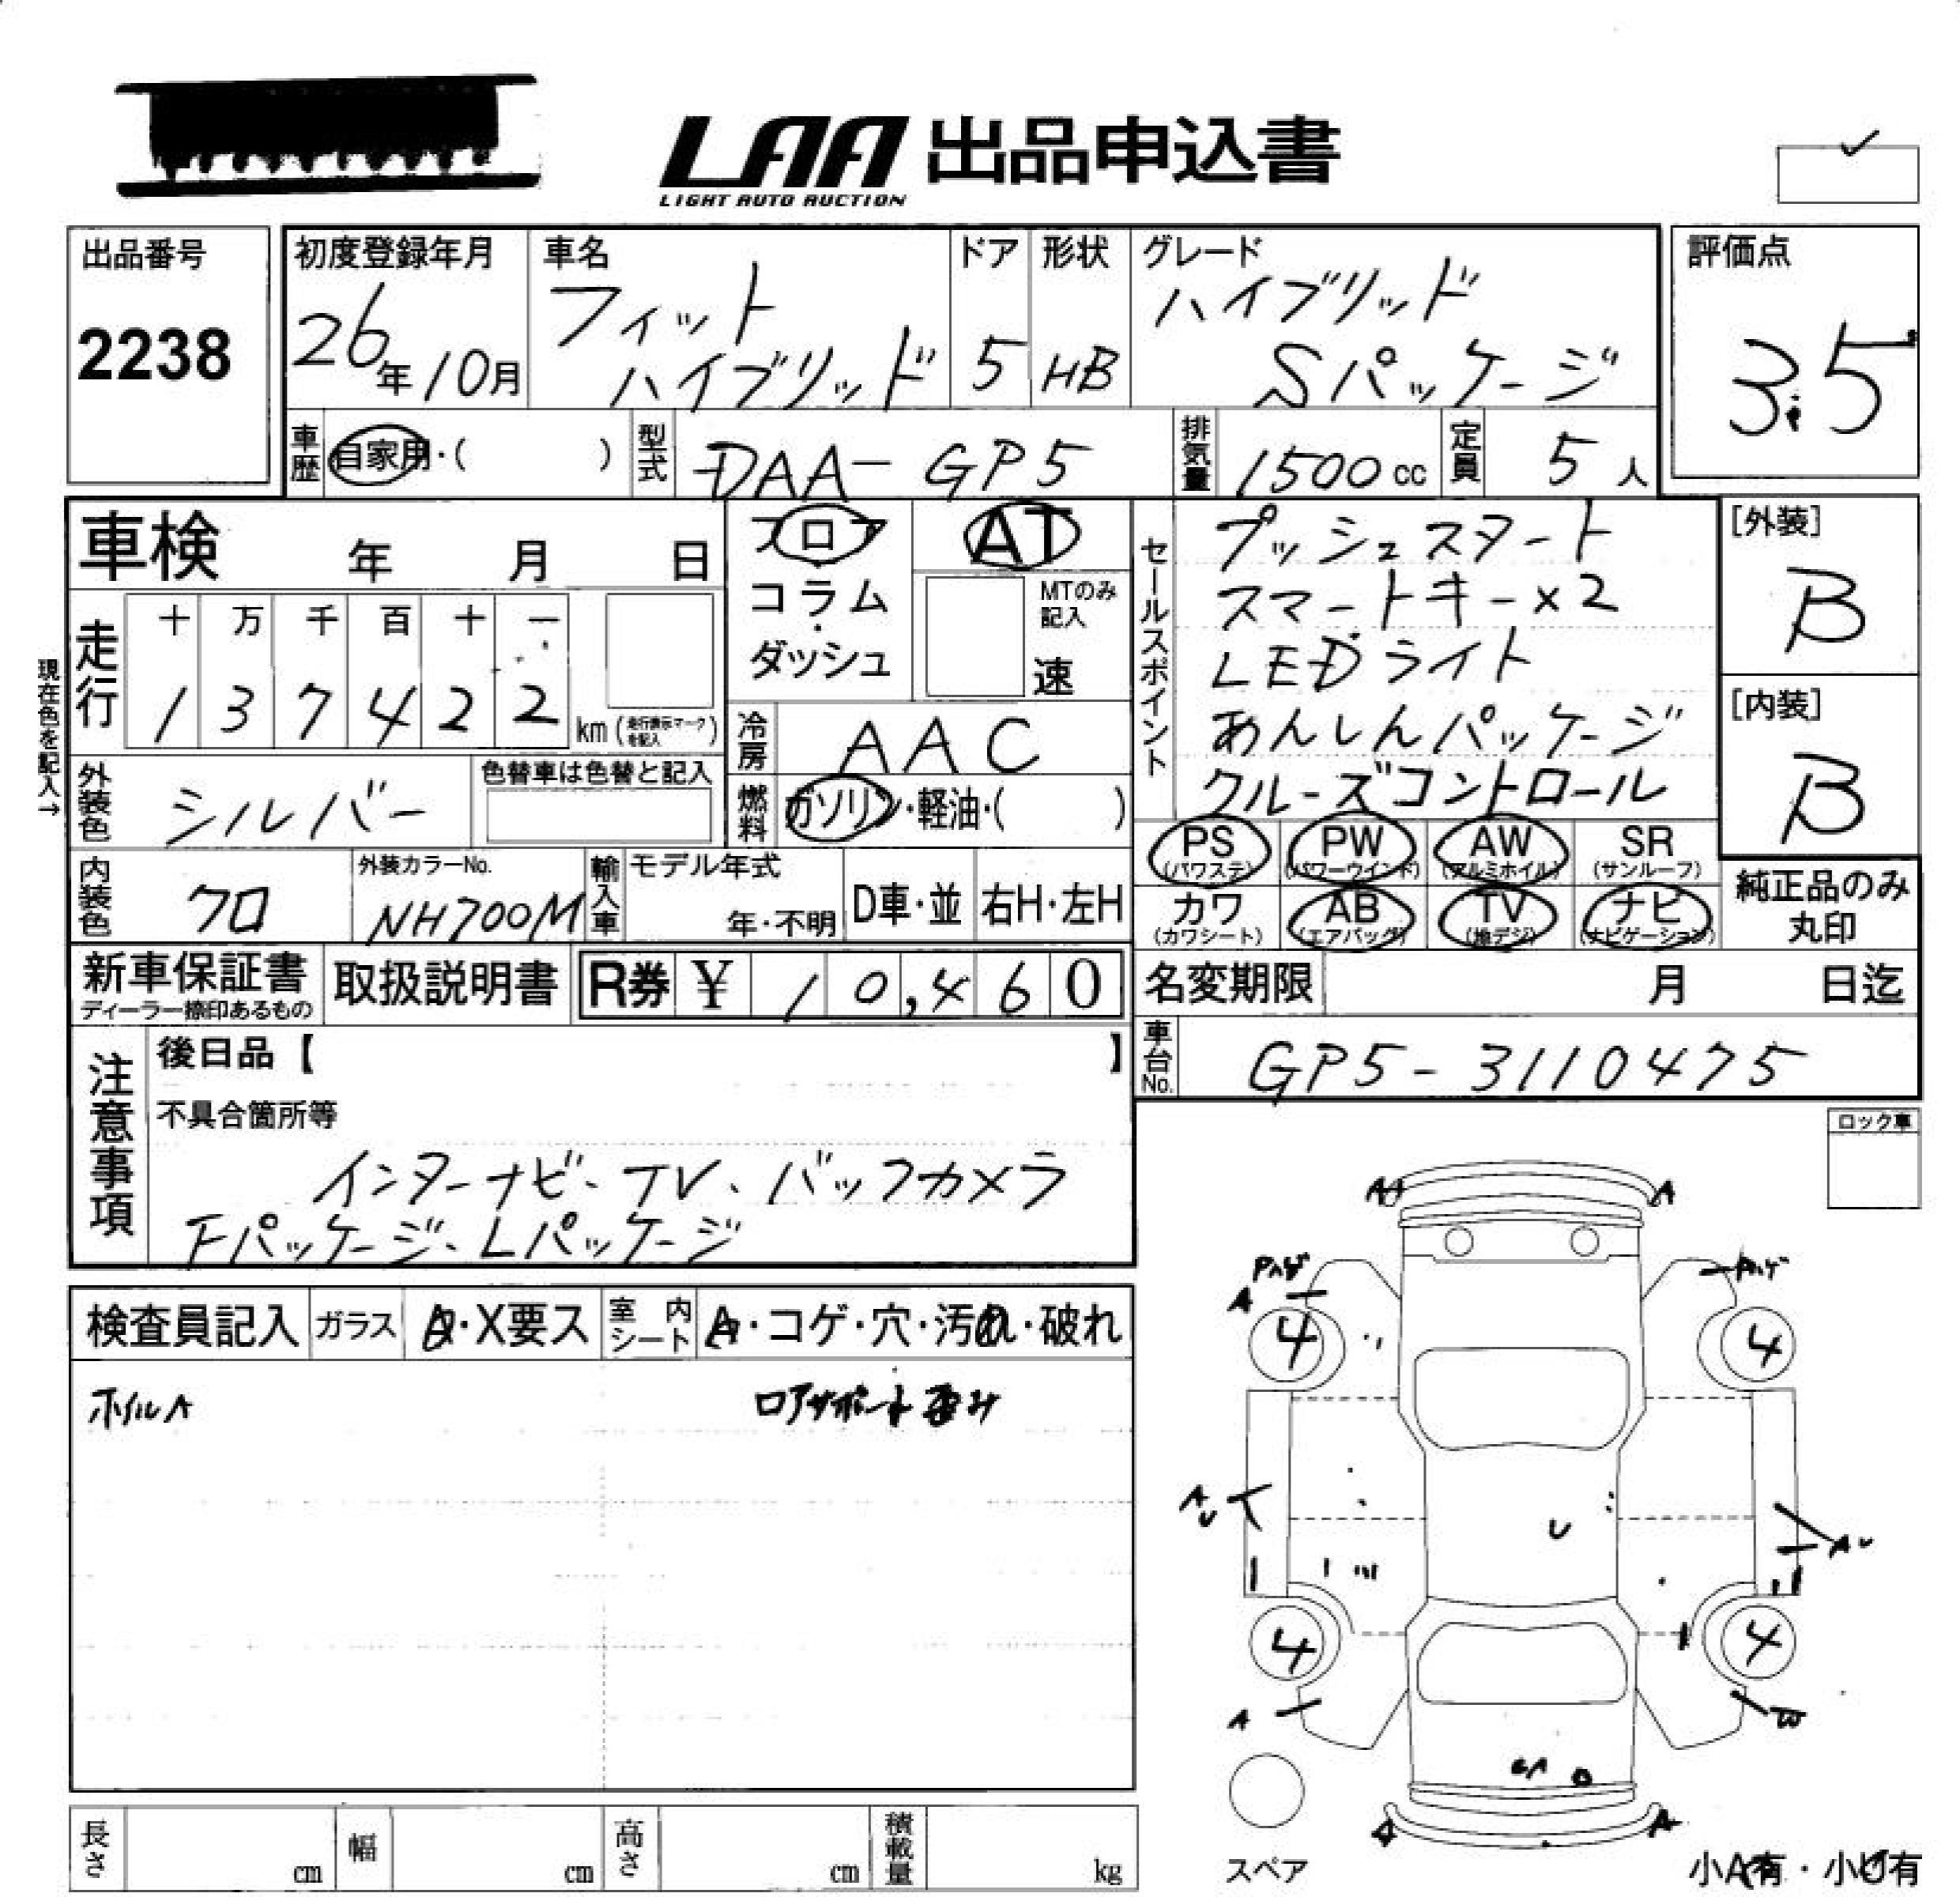 LAA 出品申込書
LIGHT AUTO AUCTION
出品番号
2238
初度登録年月
26年10月
車名
フィット
ハイブリッド
ドア
5
形状
HB
グレード
ハイブリッド
Sパッケージ
評価点
3.5
車歴 自家用・( )
型式 DAA-GP5
排気量 1500cc
定員 5人
車検 年 月 日
フロア
コラム
・
ダッシュ
AT
MTのみ記入
速
セールスポイント
プッシュスタート
スマートキー×2
LEDライト
あんしんパッケージ
クルーズコントロール
[外装]
B
[内装]
B
現在色を記入→
走行
十 万 千 百 十 一
1 3 7 4 2 2 km (走行表示マークを記入)
冷房 AAC
外装色 シルバー
色替車は色替と記入
燃料 ガソリン・軽油・( )
PS (パワステ) PW (パワーウインド) AW (アルミホイル) SR (サンルーフ)
カワ (カワシート) AB (エアバッグ) TV (地デジ) ナビ (ナビゲーション)
純正品のみ
丸印
内装色 クロ
外装カラーNo.
NH700M
輸入車
モデル年式
年・不明
D車・並
右H・左H
新車保証書
ディーラー捺印あるもの
取扱説明書
R券 ¥ 10,460
名変期限 月 日迄
車台No. GP5-3110475
注意事項
後日品【 】
不具合箇所等
インターナビ、TV、バックカメラ
Fパッケージ、Lパッケージ
ロック車
検査員記入
ガラス A・X要ス
室内シート A・コゲ・穴・汚れ・破れ
ホイルA
ロアサポート歪み
A A
Pハゲ Pハゲ
A
4 4
A
U
U
AU
4 4
A W
A A
スペア
小A有・小U有
長さ cm
幅 cm
高さ cm
積載量 kg